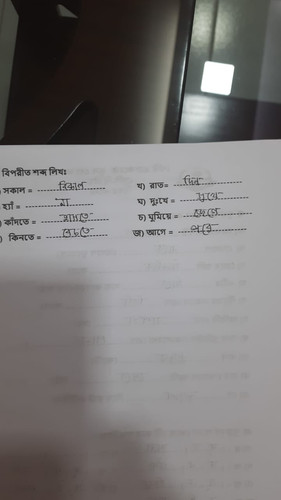 বিপরীত শব্দ লিখঃ
সকাল = বিকাল খ) রাত= দিন
হ্যাঁ = না ঘ) দুঃখে = সুখে
কাঁদতে = হাসতে চ) ঘুমিয়ে = জেগে
) কিনতে = বেচতে জ) আগে = পরে